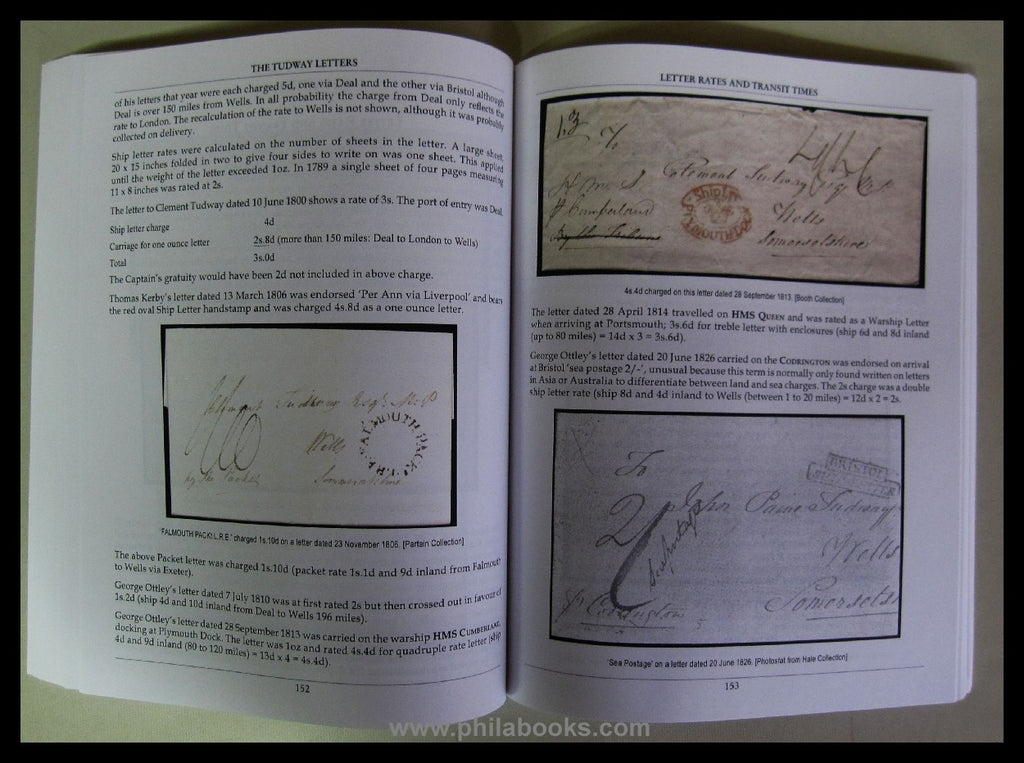 THE TUDWAY LETTERS
of his letters that year were each charged 5d, one via Deal and the other via Bristol although
Deal is over 150 miles from Wells. In all probability the charge from Deal only reflects the
rate to London. The recalculation of the rate to Wells is not shown, although it was probably
collected on delivery.
Ship letter rates were calculated on the number of sheets in the letter. A large sheet,
20 x 15 inches folded in two to give four sides to write on was one sheet. This applied
until the weight of the letter exceeded 1oz. In 1789 a single sheet of four pages measuring
11 x 8 inches was rated at 2s.
The letter to Clement Tudway dated 10 June 1800 shows a rate of 3s. The port of entry was Deal.
Ship letter charge 4d
Carriage for one ounce letter 2s.8d (more than 150 miles: Deal to London to Wells)
Total 3s.0d
The Captain's gratuity would have been 2d not included in above charge.
Thomas Kerby's letter dated 13 March 1806 was endorsed 'Per Ann via Liverpool' and bears
the red oval Ship Letter handstamp and was charged 4s.8d as a one ounce letter.
Clement Tudway Esqr M.P
Wells
Somersetshire
by the Packet
FALMOUTH PACK
'FALMOUTH PACKt.L.R.E.' charged 1s.10d on a letter dated 23 November 1806. [Partain Collection]
The above Packet letter was charged 1s.10d (packet rate 1s.1d and 9d inland from Falmouth
to Wells via Exeter).
George Ottley's letter dated 7 July 1810 was at first rated 2s but then crossed out in favour of
1s.2d (ship 4d and 10d inland from Deal to Wells 196 miles).
George Ottley's letter dated 28 September 1813 was carried on the warship HMS CUMBERLAND,
docking at Plymouth Dock. The letter was 1oz and rated 4s.4d for quadruple rate letter (ship
4d and 9d inland (80 to 120 miles) = 13d x 4 = 4s.4d).
152
LETTER RATES AND TRANSIT TIMES
To
Clement Tudway Esq
H M S
Cumberland
Wells
Somersetshire
4s.4d charged on this letter dated 28 September 1813. [Booth Collection]
The letter dated 28 April 1814 travelled on HMS QUEEN and was rated as a Warship Letter
when arriving at Portsmouth; 3s.6d for treble letter with enclosures (ship 6d and 8d inland
(up to 80 miles) = 14d x 3 = 3s.6d).
George Ottley's letter dated 20 June 1826 carried on the CODRINGTON was endorsed on arrival
at Bristol 'sea postage 2/-', unusual because this term is normally only found written on letters
in Asia or Australia to differentiate between land and sea charges. The 2s charge was a double
ship letter rate (ship 8d and 4d inland to Wells (between 1 to 20 miles) = 12d x 2 = 2s.
To
BRISTOL
John Paine Tudway
Sea Postage
Wells
Codrington
Somersets
'Sea Postage' on a letter dated 20 June 1826. [Photostat from Hale Collection]
153
www.philabooks.com